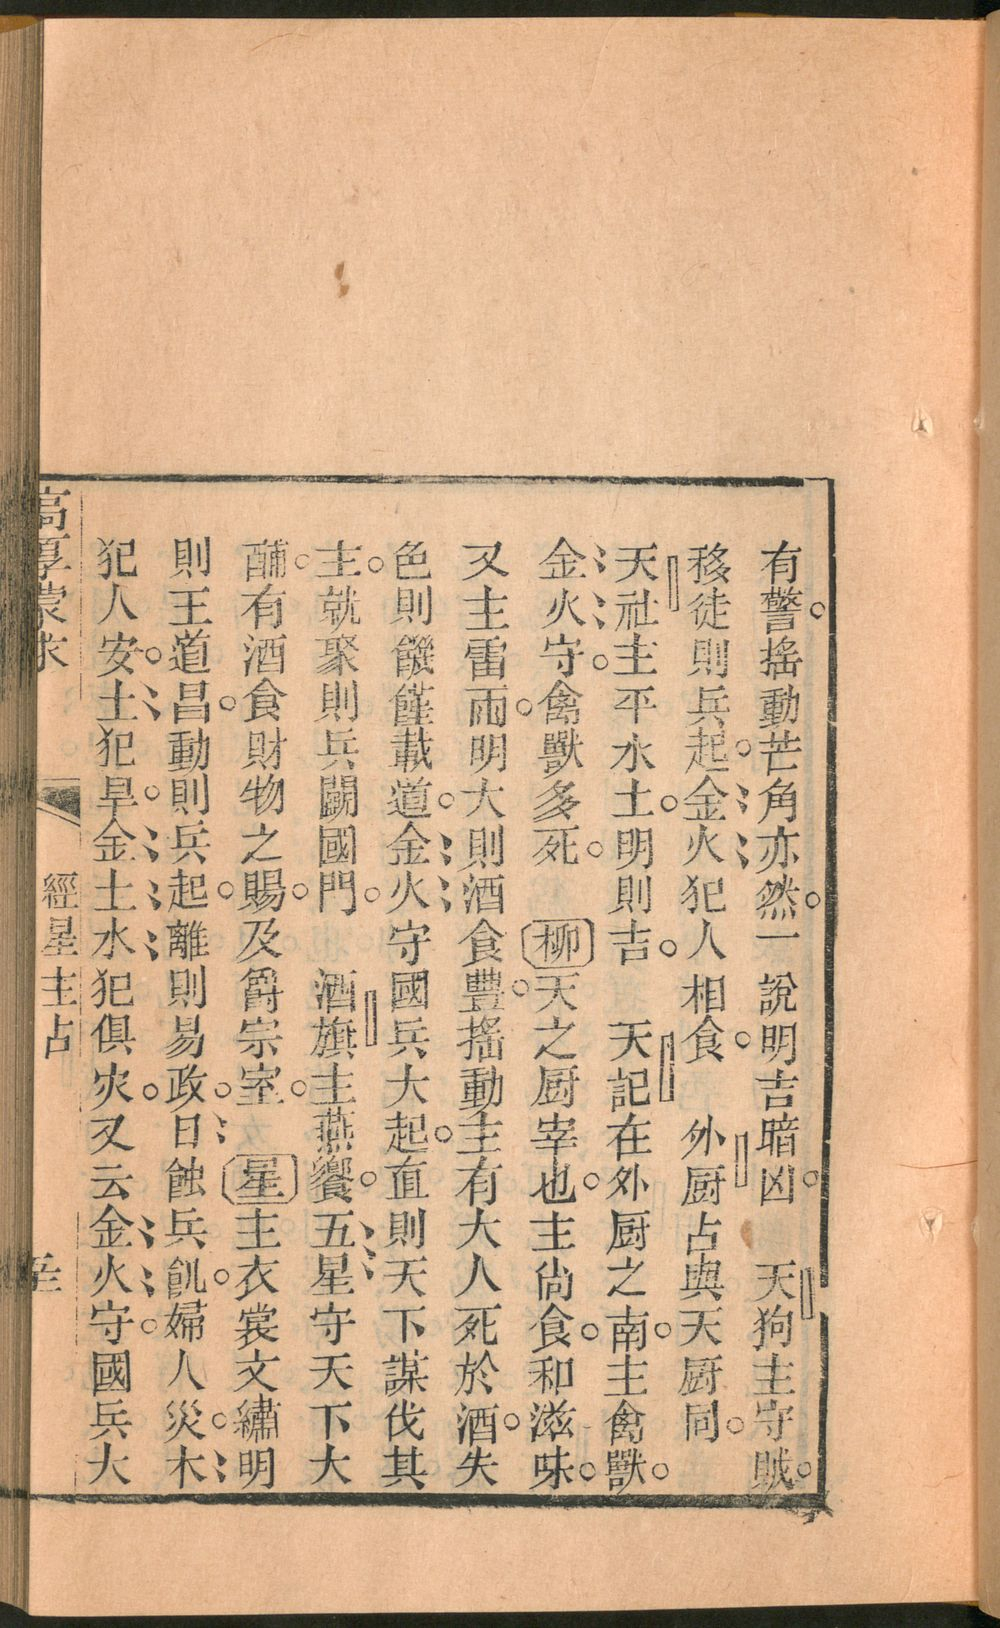 有警搖動芒角亦然一說明吉暗凶　天狗主守賊
移徒則兵起金火犯人相食　外厨占與天厨同
天社主平水土明則吉　天記在外厨之南主禽獸
金火守禽獸多死　柳天之厨宰也主尙食和滋味
又主雷雨明大則酒食豐搖動主有大人死於酒失
色則饑饉載道金火守國兵大起直則天下謀伐其
主就聚則兵鬭國門　酒旗主燕饗五星守天下大
酺有酒食財物之賜及爵宗室　星主衣裳文繡明
則王道昌動則兵起離則易政日蝕兵飢婦人災木
犯人安土犯旱金土水犯俱灾又云金火守國兵大
高厚蒙求
經星主占